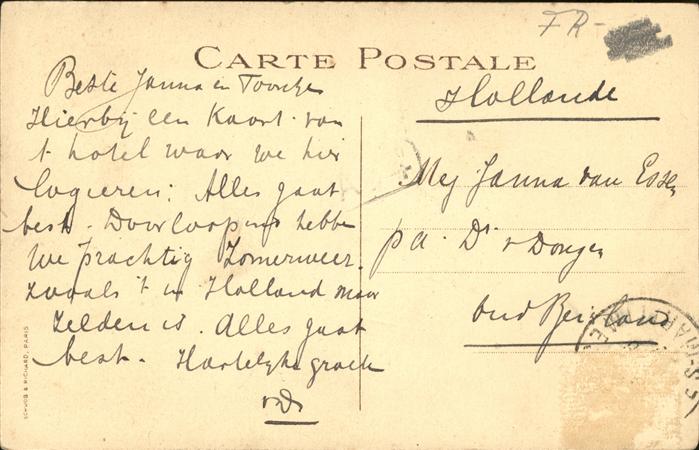 FR-
CARTE POSTALE
Beste Janna en Toosje
Hierbij een Kaart van
't hotel waar we hier
logieren: Alles gaat
best. Doorloopend hebben
we prachtig Zomerweer.
zooals 't in Holland maar
zelden is. Alles gaat
best. Hartelijke groeten
vD
Hollande
Mej Janna van Essen
pa. Dr v Dongen
Oud Beierland
SCHWOB & RICHARD, PARIS